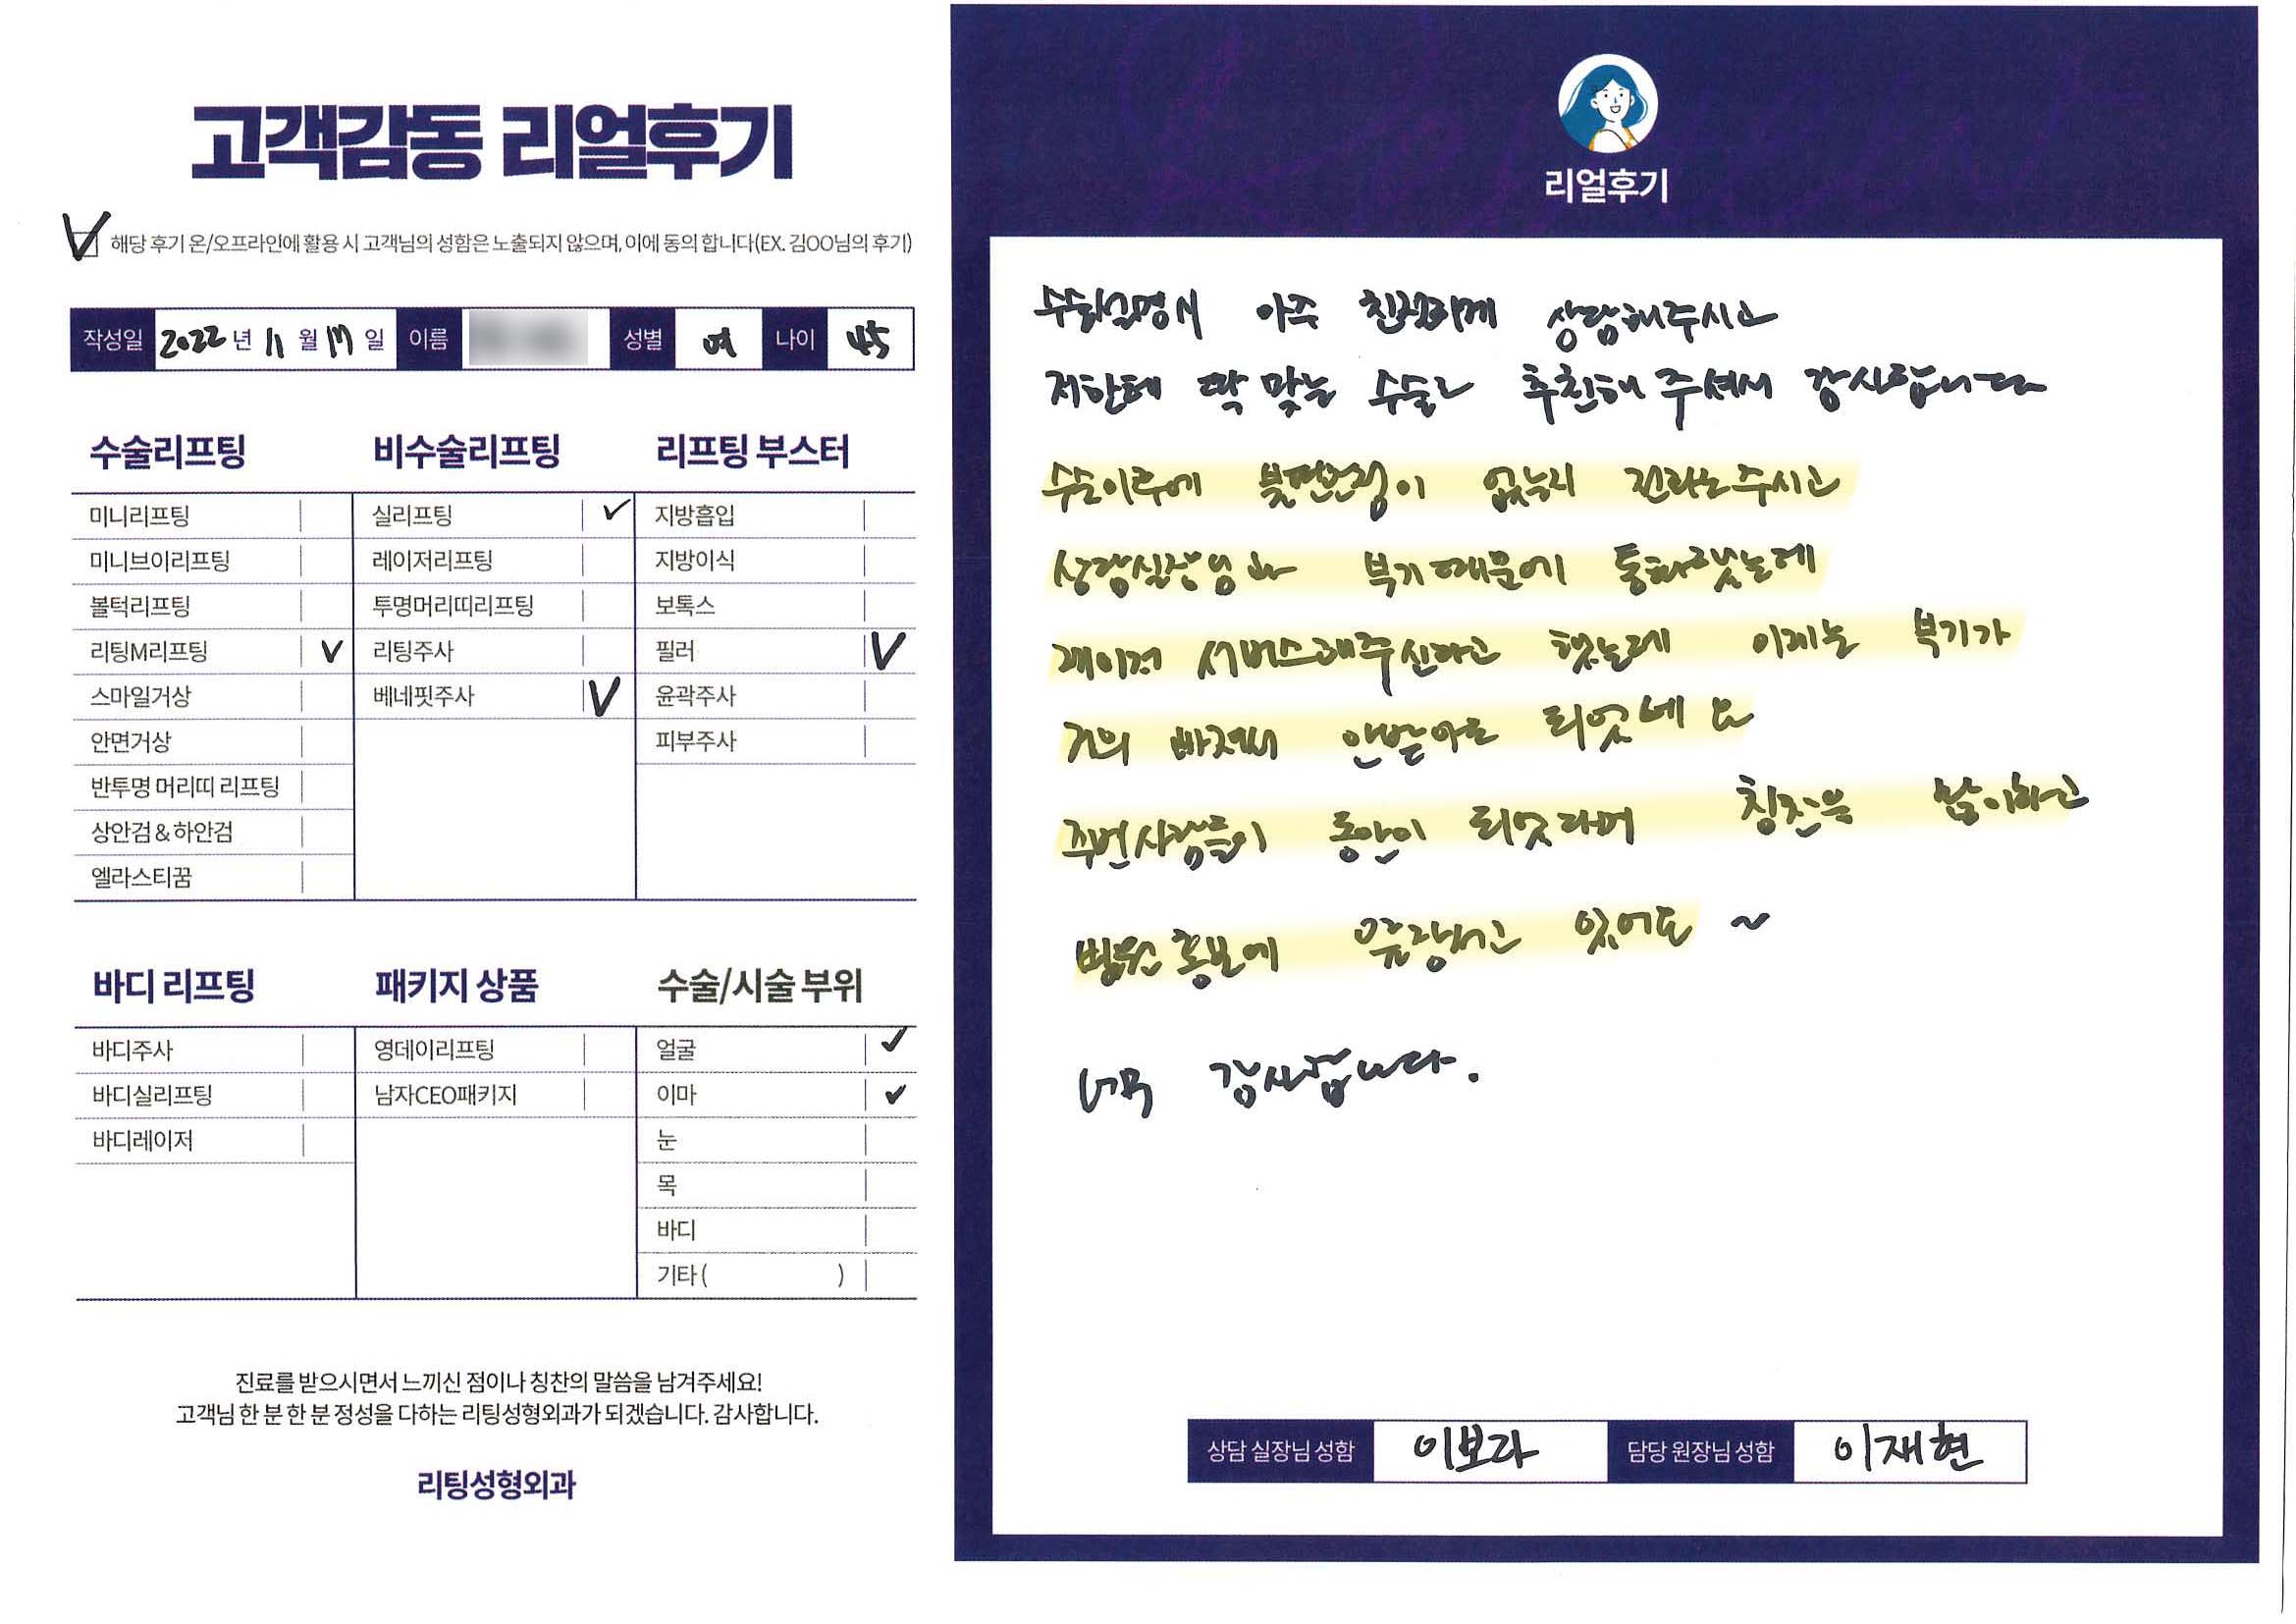 고객감동 리얼후기
해당 후기 온/오프라인에 활용 시 고객님의 성함은 노출되지 않으며, 이에 동의 합니다(EX. 김OO님의 후기)
작성일 2022 년 11 월 17 일 이름 성별 여 나이 45
수술리프팅 비수술리프팅 리프팅 부스터
미니리프팅 실리프팅 지방흡입
미니브이리프팅 레이저리프팅 지방이식
볼턱리프팅 투명머리띠리프팅 보톡스
리팅M리프팅 리팅주사 필러
스마일거상 베네핏주사 윤곽주사
안면거상 피부주사
반투명 머리띠 리프팅
상안검 & 하안검
엘라스티꿈
바디 리프팅 패키지 상품 수술/시술 부위
바디주사 영데이리프팅 얼굴
바디실리프팅 남자CEO패키지 이마
바디레이저 눈
목
바디
기타 ( )
진료를 받으시면서 느끼신 점이나 칭찬의 말씀을 남겨주세요!
고객님 한 분 한 분 정성을 다하는 리팅성형외과가 되겠습니다. 감사합니다.
리팅성형외과
리얼후기
아주 친절하게 상담해주시고
저한테 딱 맞는 수술로 추천해 주셔서 감사합니다
수술이후에 불편한점이 없는지 전화도주시고
상담실장님과 부기때문에 통화했는데
레이저 서비스해주신다고 했는데 이제는 부기가
거의 빠져서 안받아도 되엇네요
주변사람들이 동안이 되엇다며 칭찬을 많이하고
병원홍보에 앞장서고 있어요~
너무 감사합니다.
상담 실장님 성함 이보라 담당 원장님 성함 이재현